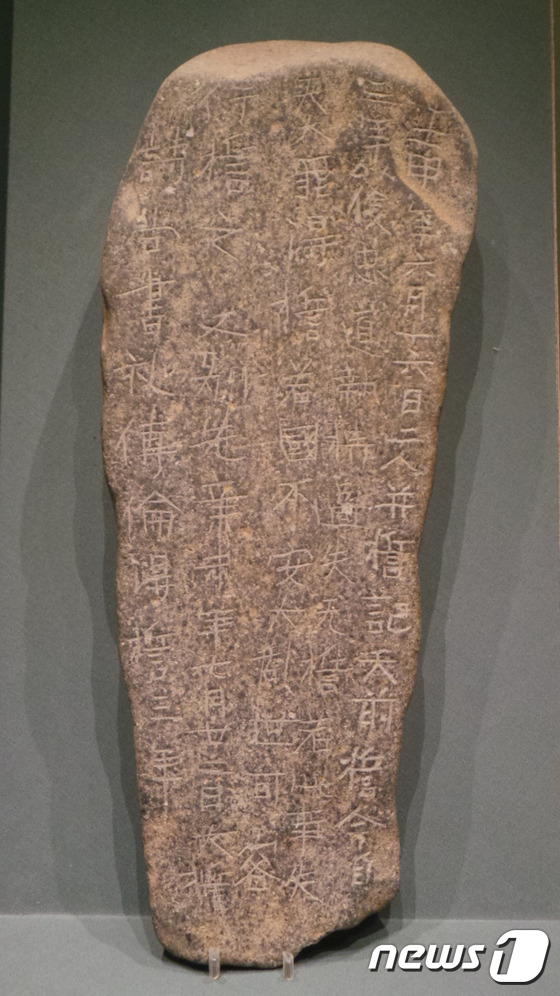 壬申年六月十六日二人幷誓記天前誓今自
三年以後忠道執持過失无誓若此事失
天大罪得誓若國不安大亂世可容
行誓之 又別先辛未年七月廿二日大誓
詩尙書礼傳倫得誓三年
news1